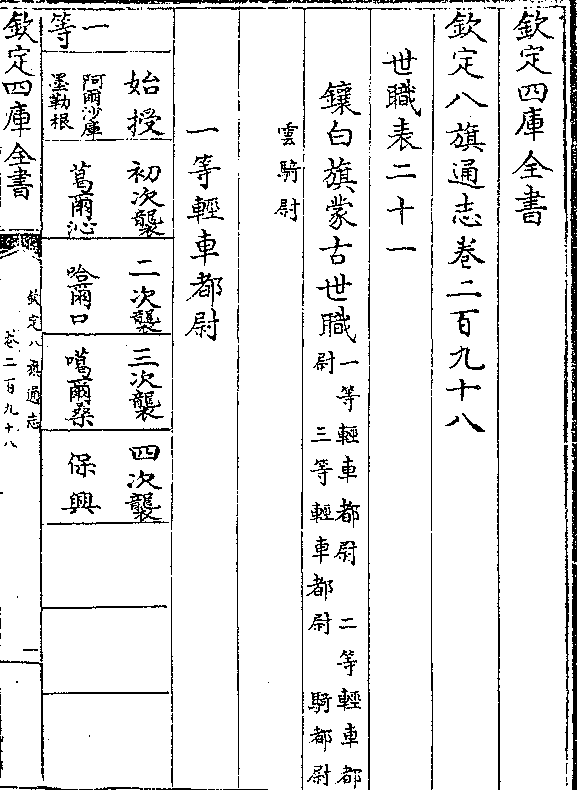 欽定四庫全書
欽定八旗通志卷二百九十八
世職表二十一
鑲白旗蒙古世職一等輕車都尉 二等輕車都
尉 三等輕車都尉 騎都尉
雲騎尉
一等輕車都尉
始授 初次襲 二次襲 三次襲 四次襲
阿爾沙庫 葛爾沁 哈爾口 噶爾桑 保興
墨勒根
一等
欽定四庫全書
欽定八旗通志
卷二百九十八
一